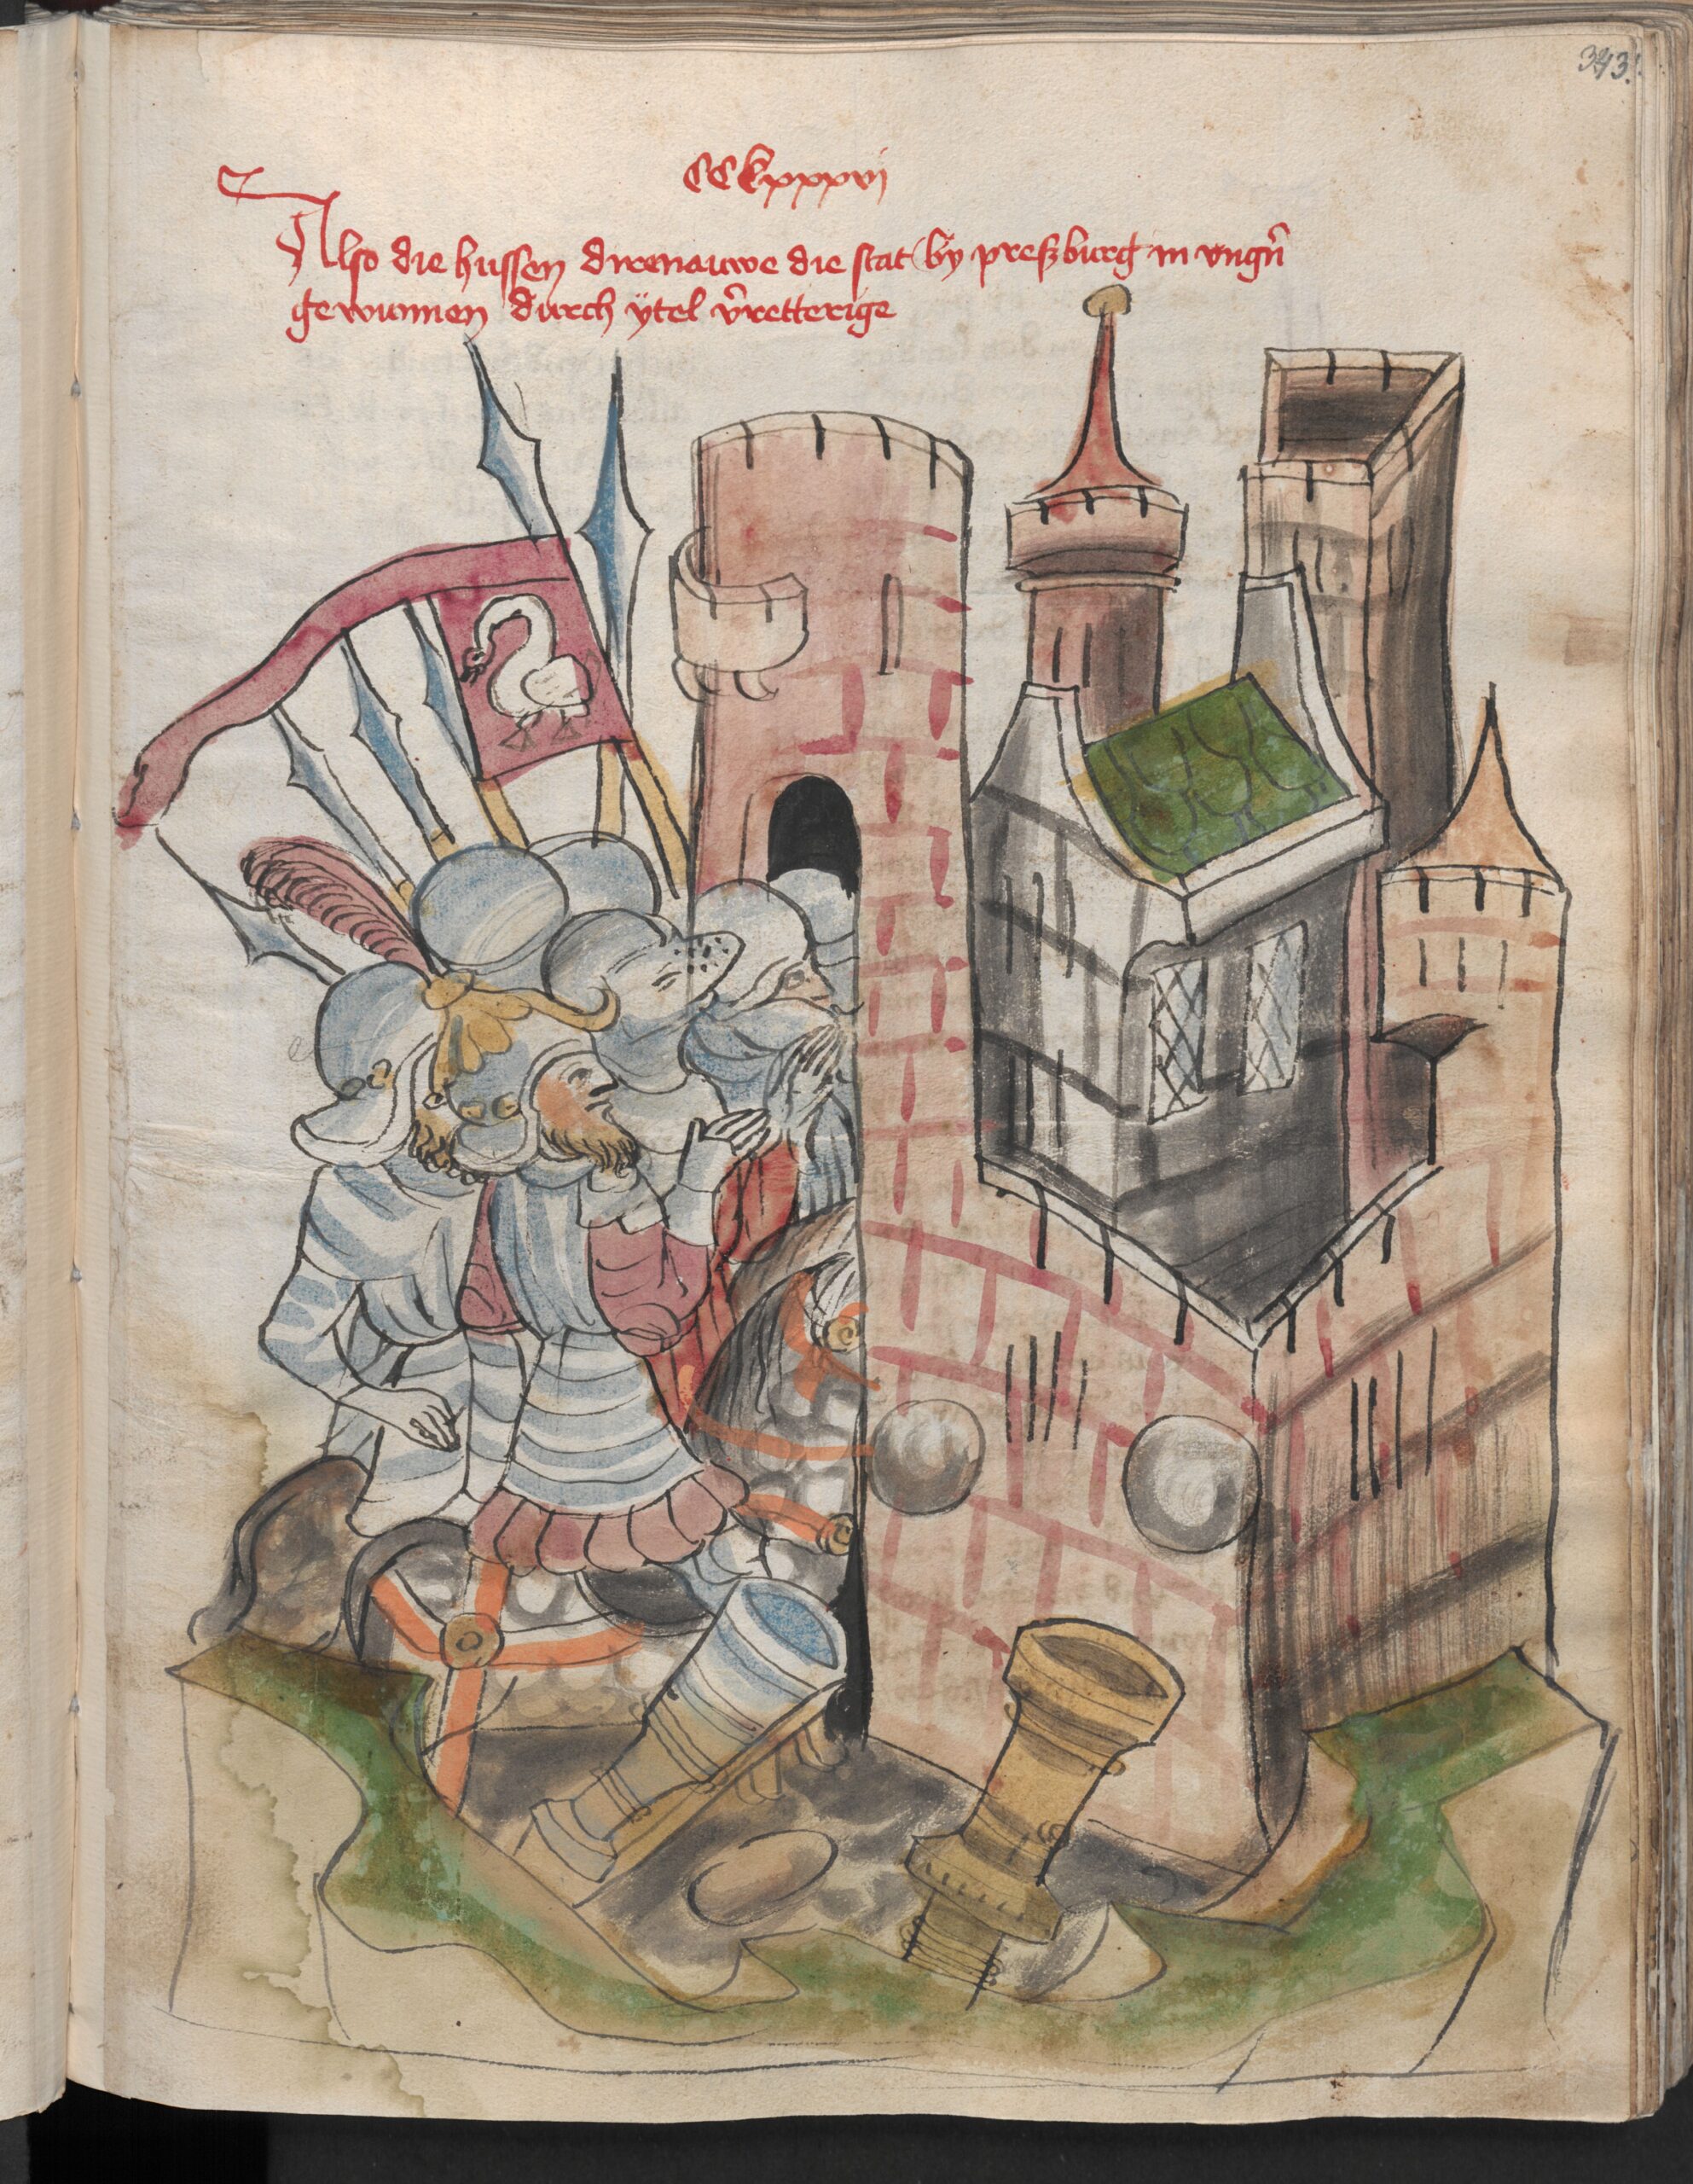 343.
CCLxxxvj
Also die hussen direnauwe die stat by preßburg in vngn̄
gewunnen durch ÿtel v̄retterige